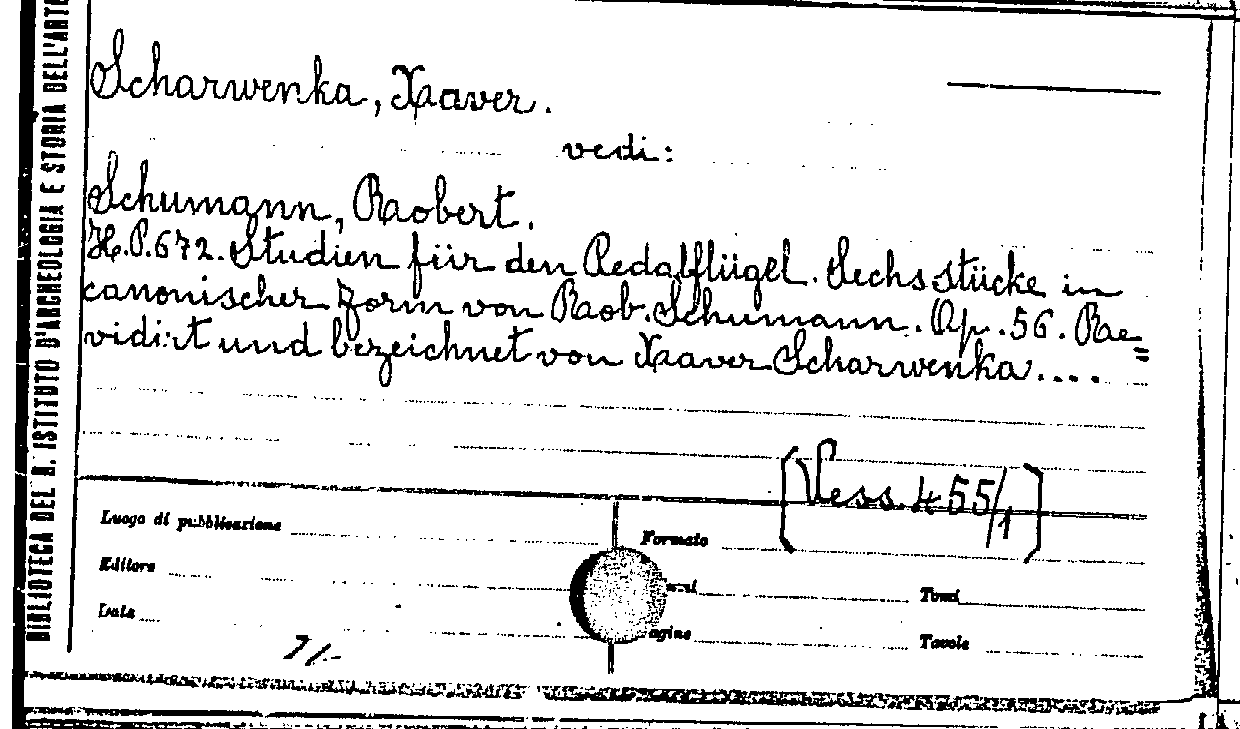 BIBLIOTECA DEL R. ISTITUTO D'ARCHEOLOGIA E STORIA DELL'ARTE
Scharwenka, Xaver.
vedi:
Schumann, Robert.
H.P.672. Studien für den Pedalflügel. Sechs stücke in
canonischer Form von Rob. Schumann. Op. 56. Re=
vidirt und bezeichnet von Xaver Scharwenka....
[Vess. 455/1]
Luogo di pubblicazione
Formato
Editore
Tomi
Data
agine
Tavole